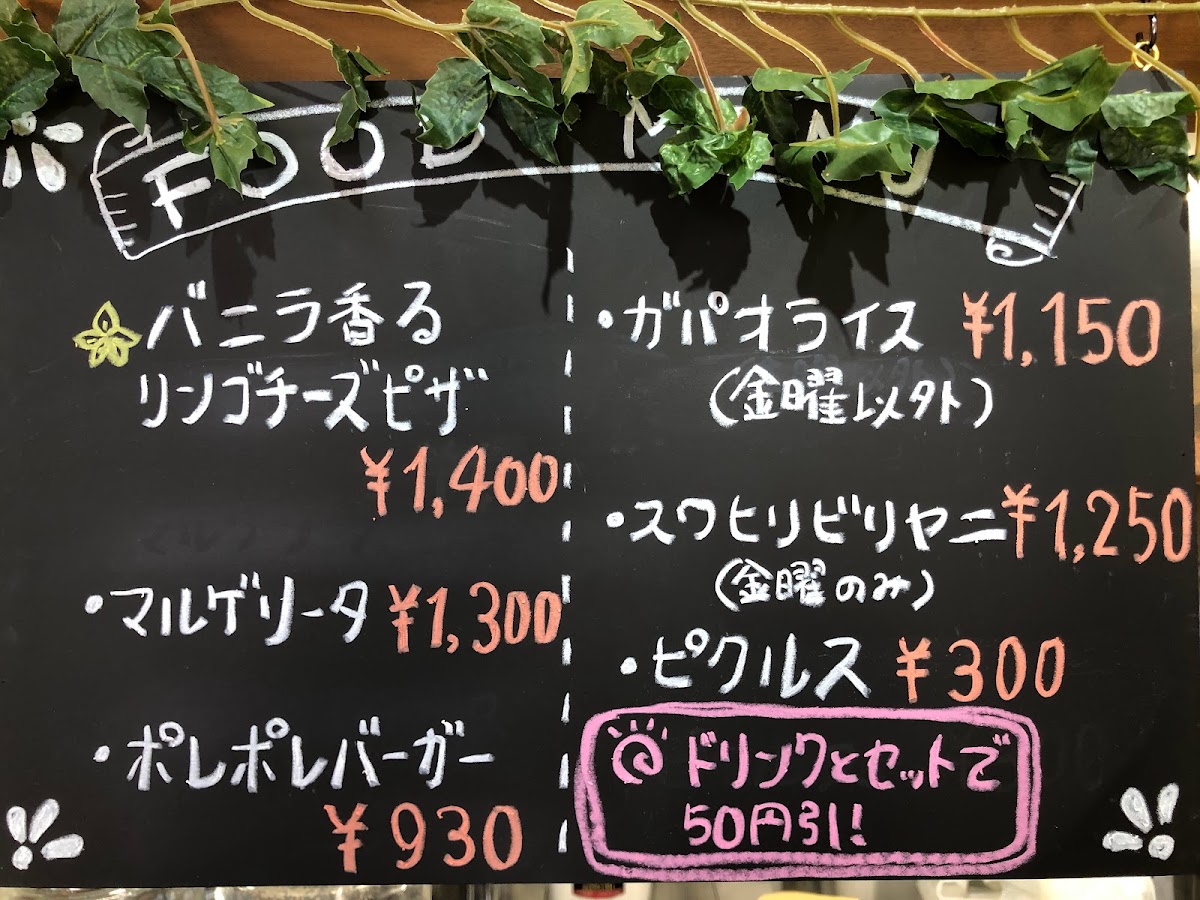 FOOD
バニラ香る
リンゴチーズピザ
¥1,400
・マルゲリータ ¥1,300
・ポレポレバーガー
¥930
・ガパオライス ¥1,150
(金曜以外)
・スワヒリビリヤニ ¥1,250
(金曜のみ)
・ピクルス ¥300
ドリンクとセットで
50円引!